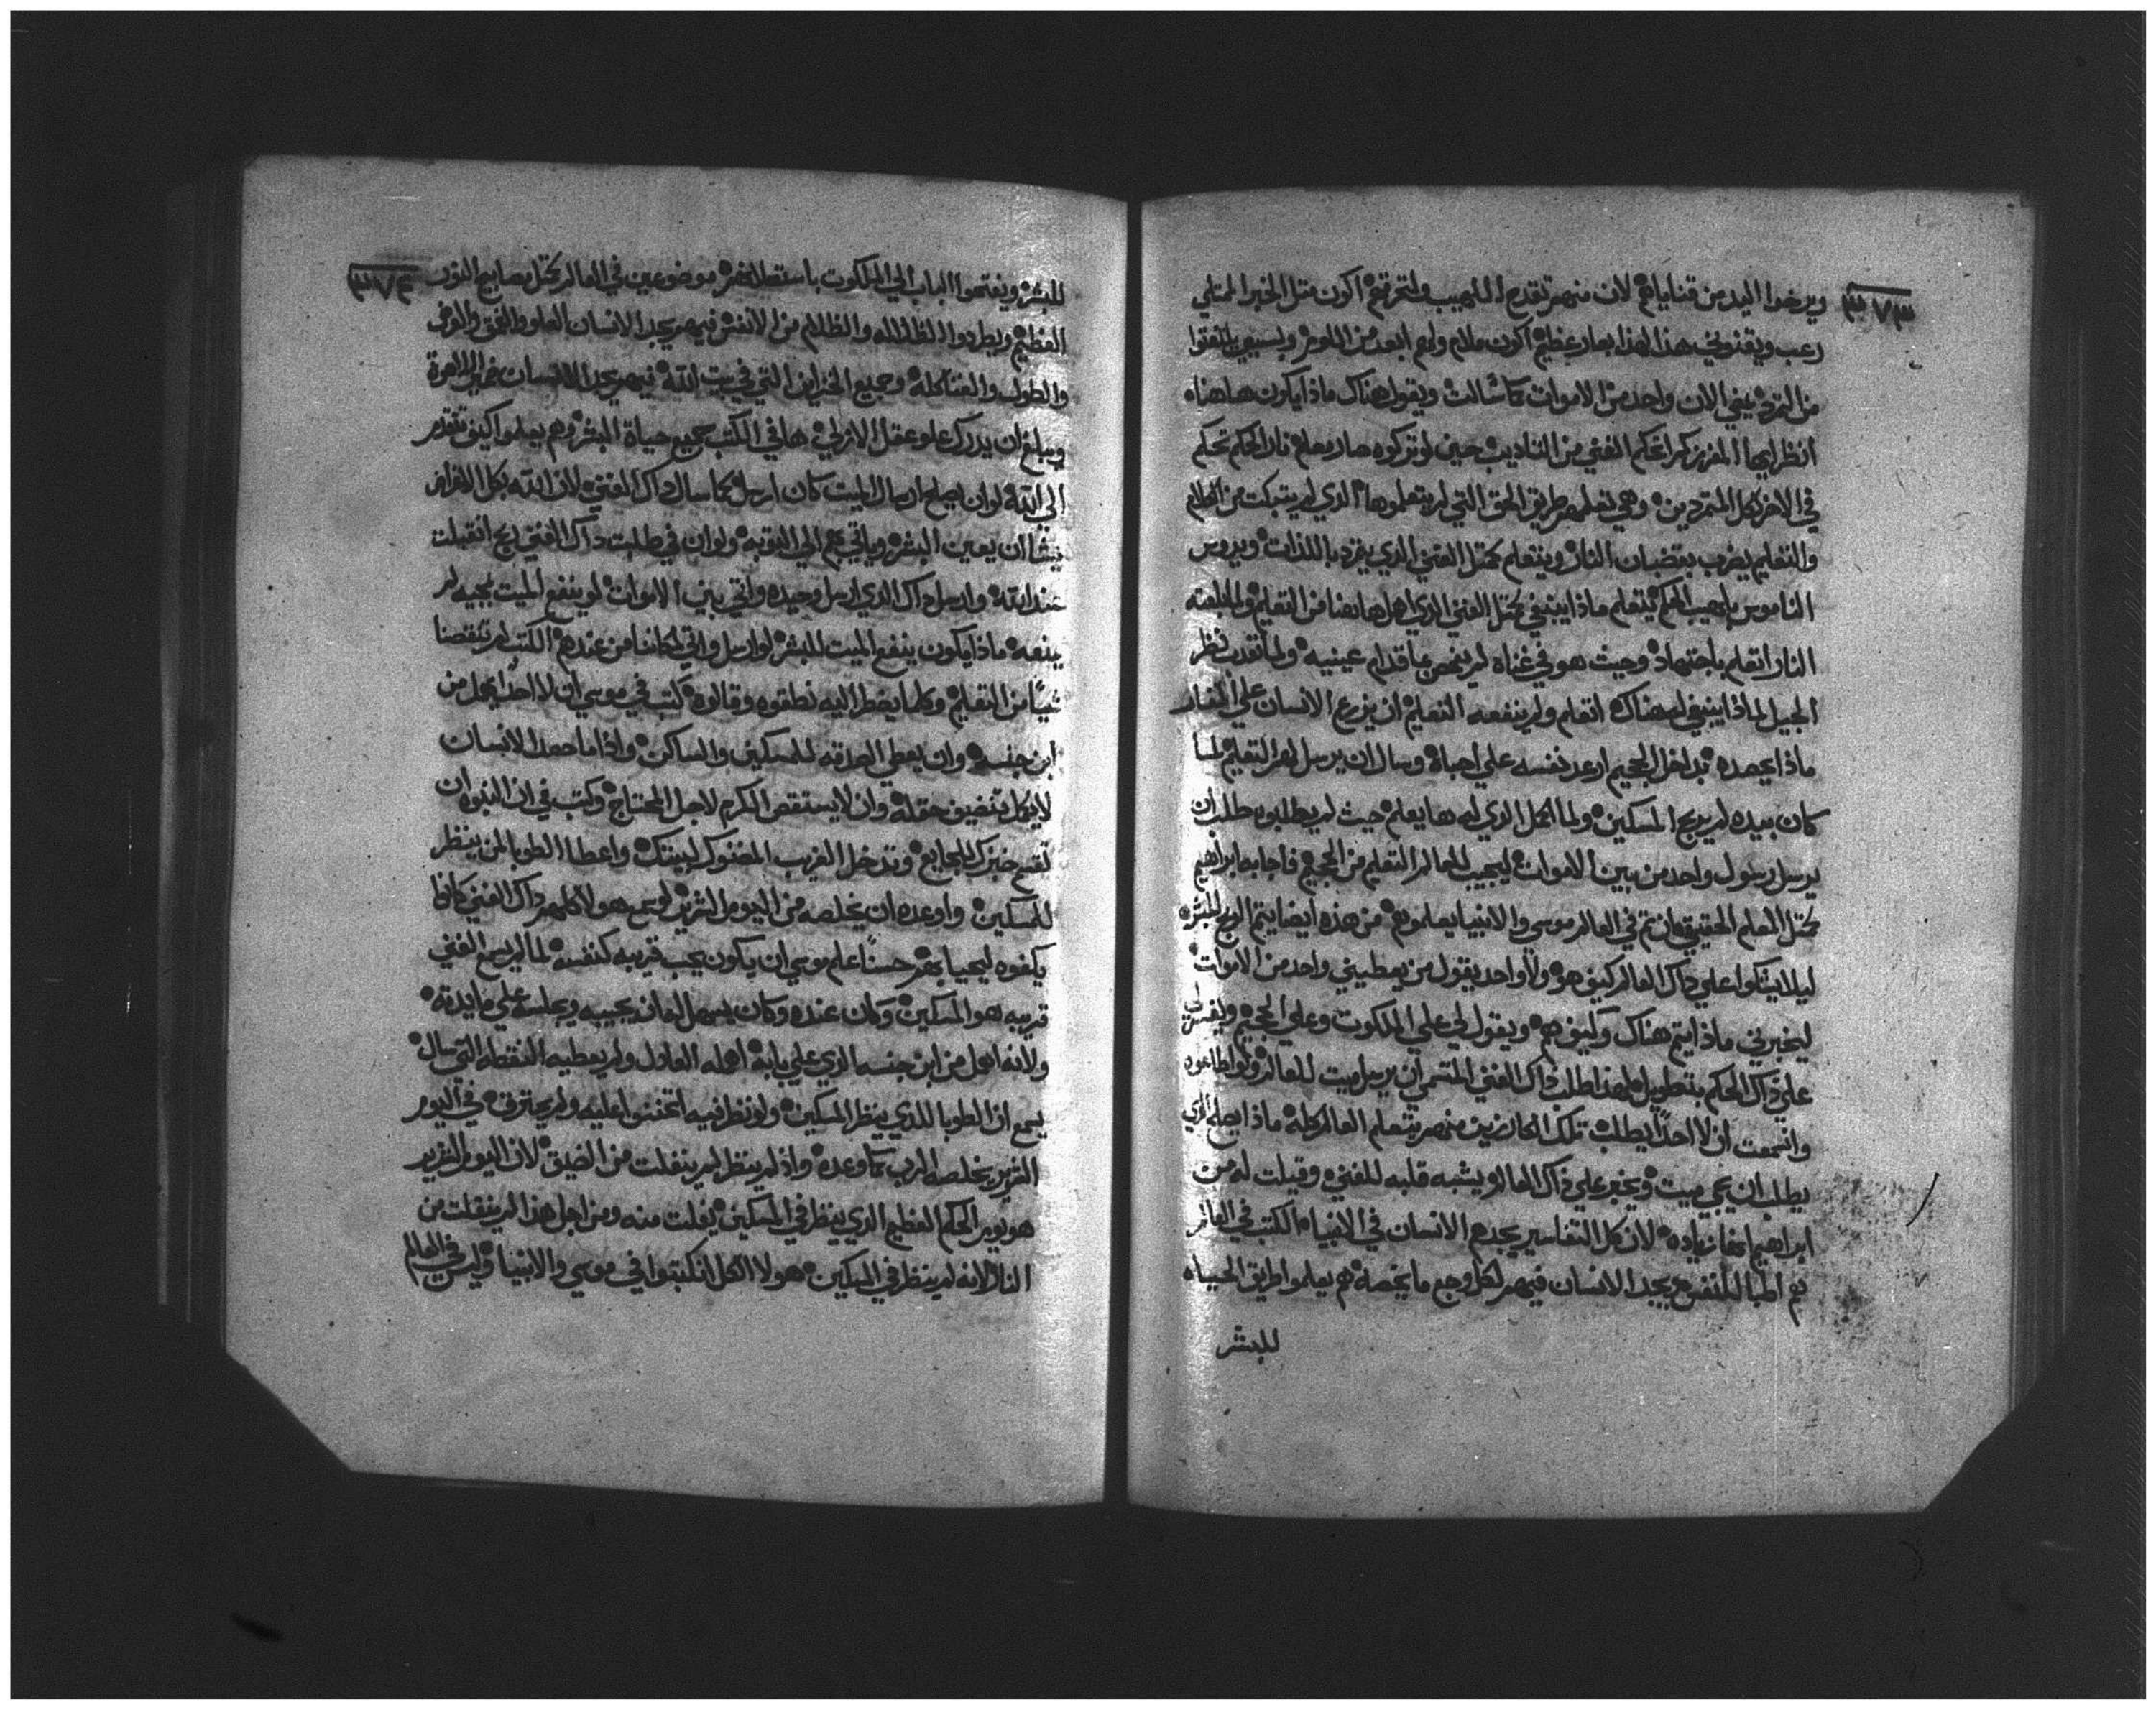 ٣٧٣
ويرخوا اليد من قناياهم لان منهم تقدح اللهيب ولتحرقهم اكون مثل الخبر الممتلي
رعب ويقنوني هذا لهذا بعار عظيم اكون ملام ولهم ابعد من اللوم
من التمرد يمضي الان واحد من الاموات كما سالت ويقول هناك ماذا يكون هاهنا
انظر ايها المفرز كم اعكم الغني من التاديب حين لو تركوه صار معلم نار الحكم تحكم
في الاخر كل المتمردين وهي تعلمهم طريق الحق التي لم يتعلموها الذي لم يتبكت من الكلام
والتعليم يضرب بقضبان النار ويتعلم كمثل الغني الذي يفرد باللذات ويدوس
الناموس بلهيب الحكم يتعلم ماذا ينبغي كمثل الغني الذي اهل هاهنا من التعليم
النار اتعلم باجتهاد وحيث هو في غناه لم يفحص ما قدام عينيه ولما نظر
الجبل لماذا ينبغي له هناك اتعلم ولم ينفعه التعليم ان يزرع الانسان علي
ماذا يحصده بداخل الجحيم ارعد نفسه علي احباه وسال ان يرسل لهم التعليم لما
كان بيده لم يريح المسكين ولما اكمل الذي له ها يعلم حيث لم يطلبوه طلب ان
يرسل رسول واحد من بين الاموات ليجيب للعالم التعليم من الجحيم فاجابه ابراهيم
كمثل المعلم الحقيقي ان ثم في العالم موسي والانبيا يعلموهم من هذه ايضا يتم الربح للبشر
ليلا يشكوا علي داك العالم كيف هو ولا واحد يقول من يعطيني واحد من الاموات
ليخبرني ماذا يتم هناك وكيف هم ويقول لي علي الملكوت وعلي الجحيم
علي داك الحكم بتطويل لهذا طلب داك الغني ان يرسل ميت للعالم
وانسمعت ان لا احدًا يطلب تلك الكارزين منهم يتعلم العالم كله ماذا
يطلب ان يحي ميت ويخبر علي داك العالم يشبه قلبه للغني وقيلت له من
ابراهيم زياده لان كل التفاسير يجدهم الانسان في الانبيا الكتب في العالم
هم اطبا للنفس يجد الانسان فيهم لكل وجع ما يخصه هم يعلموا طريق الحياه
للبشر
٣٧٤
للبشر ويفتحوا الباب الي الملكوت باستعلانهم موضوعين في العالم كمثل مصابيح النور
العظيم ويطردوا الظلاله والظلام من الانفس فيهم يجد الانسان العلو والعمق والعرض
والطول والفتاكله وجميع الخزاين التي في بيت الله فيهم يجد الانسان
ويبلغ ان يدرك علو عقل الازلي ها في الكتب جميع حياة البشر وهم يعلموا كيف تتقدم
الي الله لو ان يصلح ارسال الميت كان ارسل كما سال داك الغني لان الله بكل
يشا ان يعين البشر وياتي بهم الي التوبه ولو ان في طلبت داك الغني ربح انقبلت
عند الله وارسل داك الذي ارسل وحيده واتي بين الاموات لو ينفع الميت بمجيه لم
يمنعه ماذا يكون ينفع الميت للبشر لو ارسل واتي لكاننا من عندهم الكتب لم تنقصنا
شيًا من التعليم وكلما يضطر اليه نطقوه وقالوه كتب في موسي ان لا احدًا يهمل من
ابن جنسه وان يعطي الصدقه للمسكين والساكن واذا ما حصد الانسان
لا يكمل تنضيف حقله وان لا يستقصي الكرم لاجل المحتاج وكتب في ان النبوه ان
تقسم خبزك للجايع وتدخل الغريب المضنوك لبيتك واعطا الطوبا لمن ينظر
للمسكين واوعده ان يخلصه من اليوم الشرير لو سمع هولا كلهم داك الغني كانوا
يكفوه ليحيا بهم حسنًا علم موسي ان يكون يحب قريبه كنفسه لما لم يسمع الغني
قريبه هو المسكين وكان عنده وكان يسهل له ان يجيبه ويجلسه علي مايدته
ولانه اهمل من ابن جنسه الذي علي بابه اهمله العادل ولم يعطيه النقطه التي سال
يسمع ان الطوبا للذي ينظر المسكين ولو نظر فيه اتحننوا عليه ولم يحترق في اليوم
الشرير يخلصه الرب كما وعده واذ لم ينظر لم ينفلت من الضيق لان اليوم الشرير
هو يوم الحكم العظيم الذي ينظر في المسكين يفلت منه ومن اجل هذا لم ينفلت من
النار لانه لم ينظر في المسكين هولا الكل انكتبوا في موسي والانبيا وليس في العالم